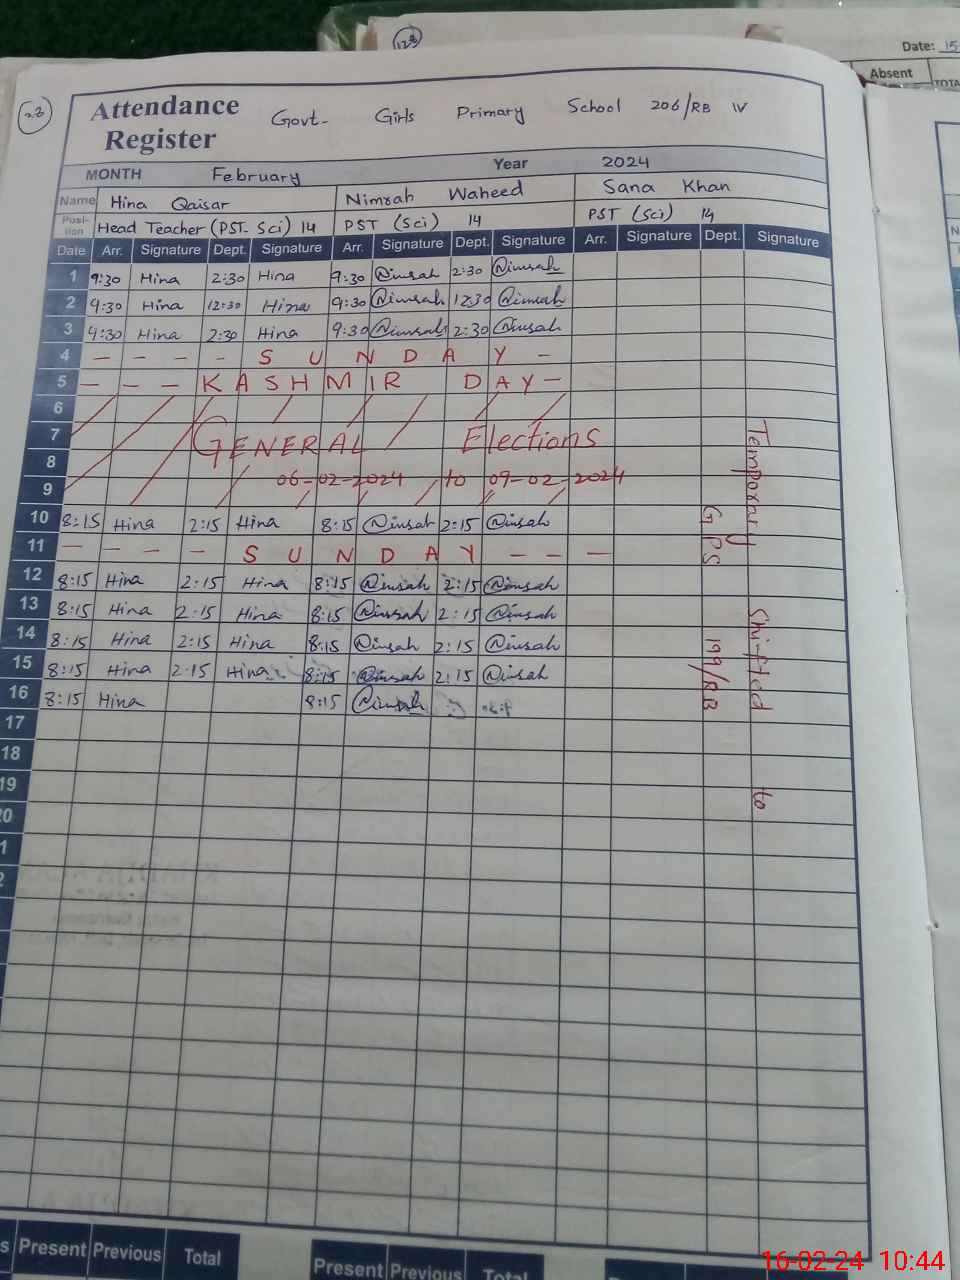 123
Date: 15
Absent
TOTA
23
Attendance Register
Govt- Girls Primary School 206/RB IV
MONTH February Year 2024
Name Hina Qaisar Nimrah Waheed Sana Khan
Posi-tion Head Teacher (PST-Sci) 14 PST (Sci) 14 PST (Sci) 14
Date Arr. Signature Dept. Signature Arr. Signature Dept. Signature Arr. Signature Dept. Signature
1 9:30 Hina 2:30 Hina 9:30 Nimrah 2:30 Nimrah
2 9:30 Hina 12:30 Hina 9:30 Nimrah 12:30 Nimrah
3 9:30 Hina 2:30 Hina 9:30 Nimrah 2:30 Nimrah
4 - - - - SUNDAY -
5 - - - KASHMIR DAY -
6
7 GENERAL Elections
8
06-02-2024 to 09-02-2024
9
10 8:15 Hina 2:15 Hina 8:15 Nimrah 2:15 Nimrah
11 - - - - SUNDAY - - -
12 8:15 Hina 2:15 Hina 8:15 Nimrah 2:15 Nimrah
13 8:15 Hina 2:15 Hina 8:15 Nimrah 2:15 Nimrah
14 8:15 Hina 2:15 Hina 8:15 Nimrah 2:15 Nimrah
15 8:15 Hina 2:15 Hina 8:15 Nimrah 2:15 Nimrah
16 8:15 Hina 8:15 Nimrah
17
18
19
20
1
2
Temporary Shifted to
GPS 199/RB
s Present Previous Total Present Previous Total
16-02-24 10:44